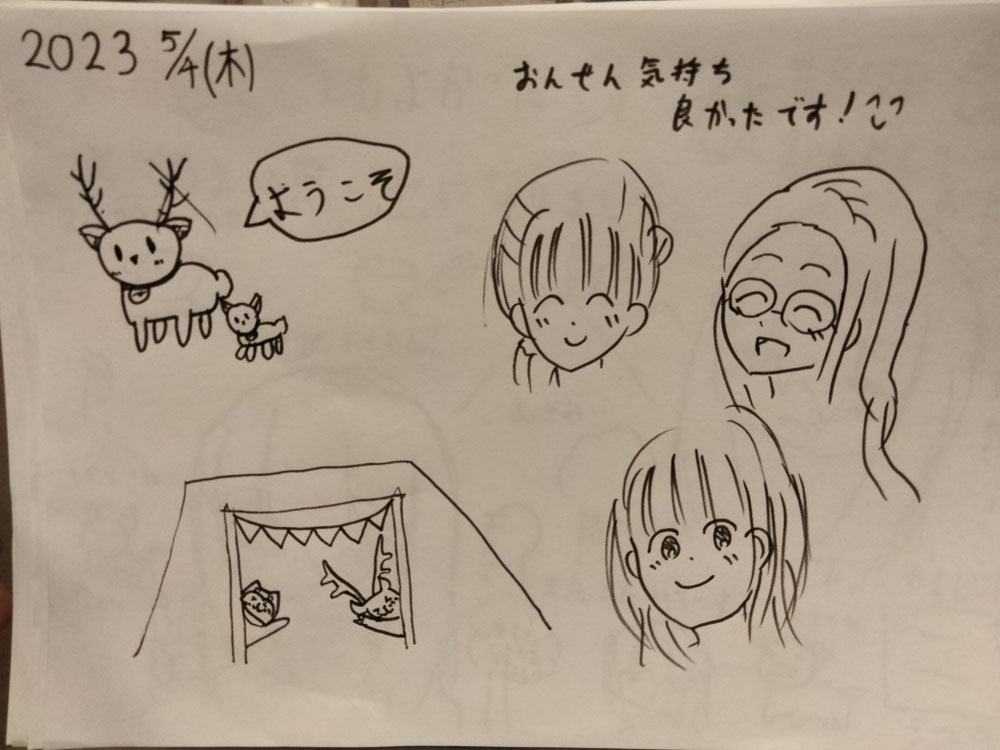 2023 5/4(木)
おんせん気持ち
良かったです!
ようこそ